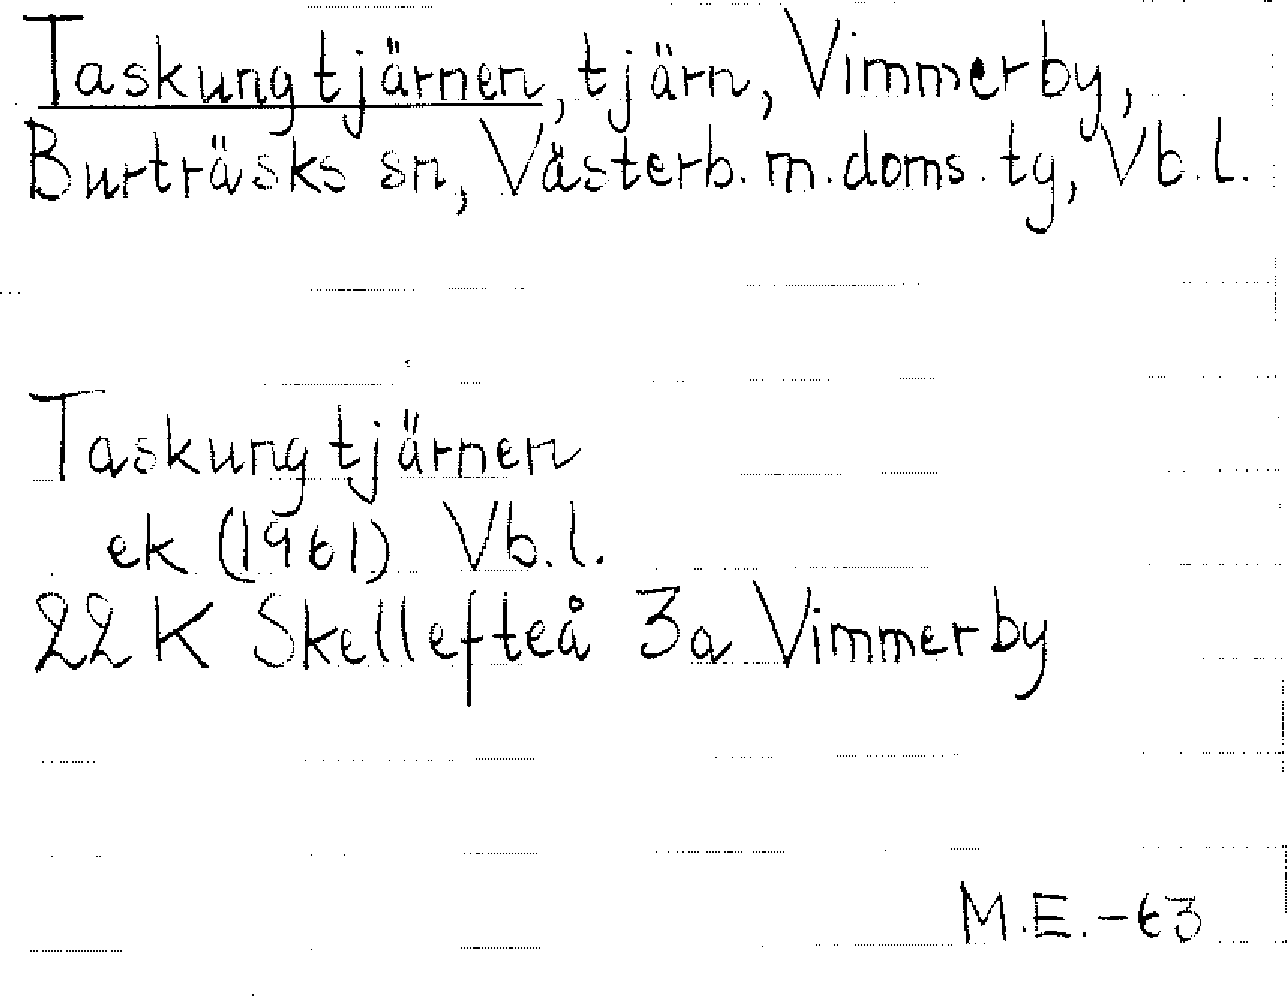 Taskungtjärnen, tjärn, Vimmerby,
Burträsks sn, Västerb. m. doms. tg, Vb. l.
Taskungtjärnen
ek (1961) Vb. l.
22 K Skellefteå 3a Vimmerby
M.E.-63